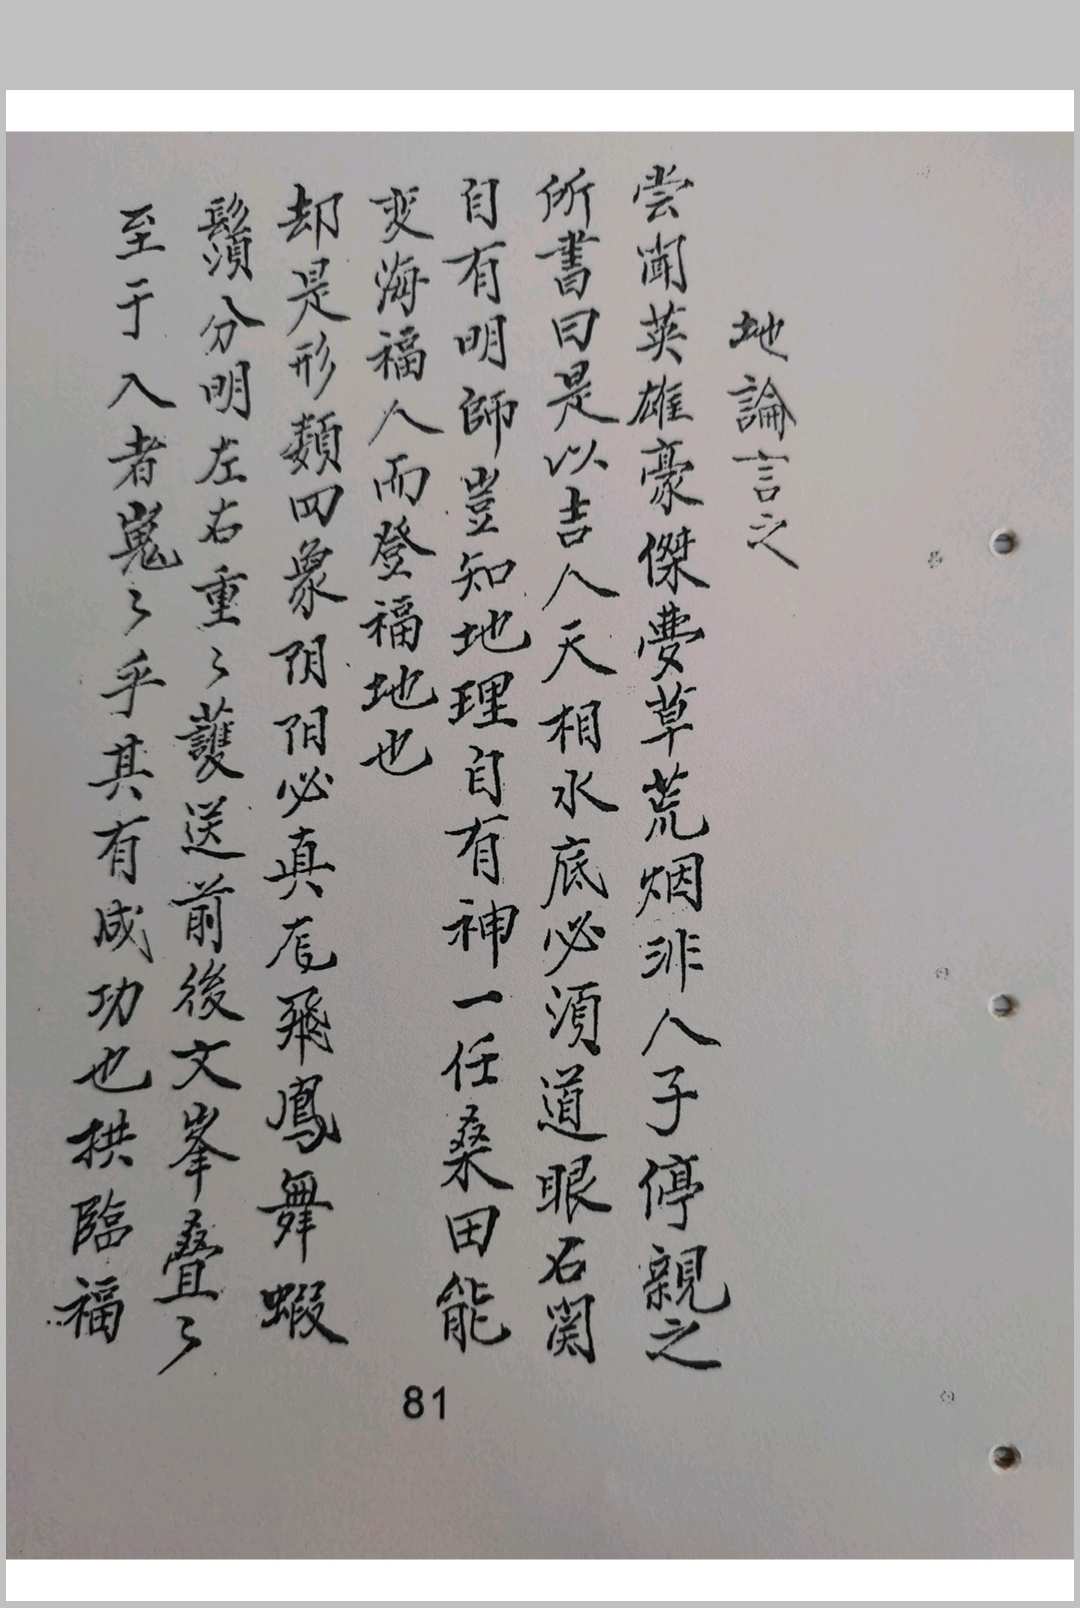 地論言之
尝闻英雄豪傑夢草荒烟非人子停親之
所書曰是以吉人天相水底必須道眼石関
自有明師豈知地理自有神一任桑田能
变海福人而登福地也
却是形類四象阴阳必真龙飛鳳舞蝦
鬚分明左右重〻護送前後文峯叠〻
至于入者嵬〻乎其有成功也拱臨福
81